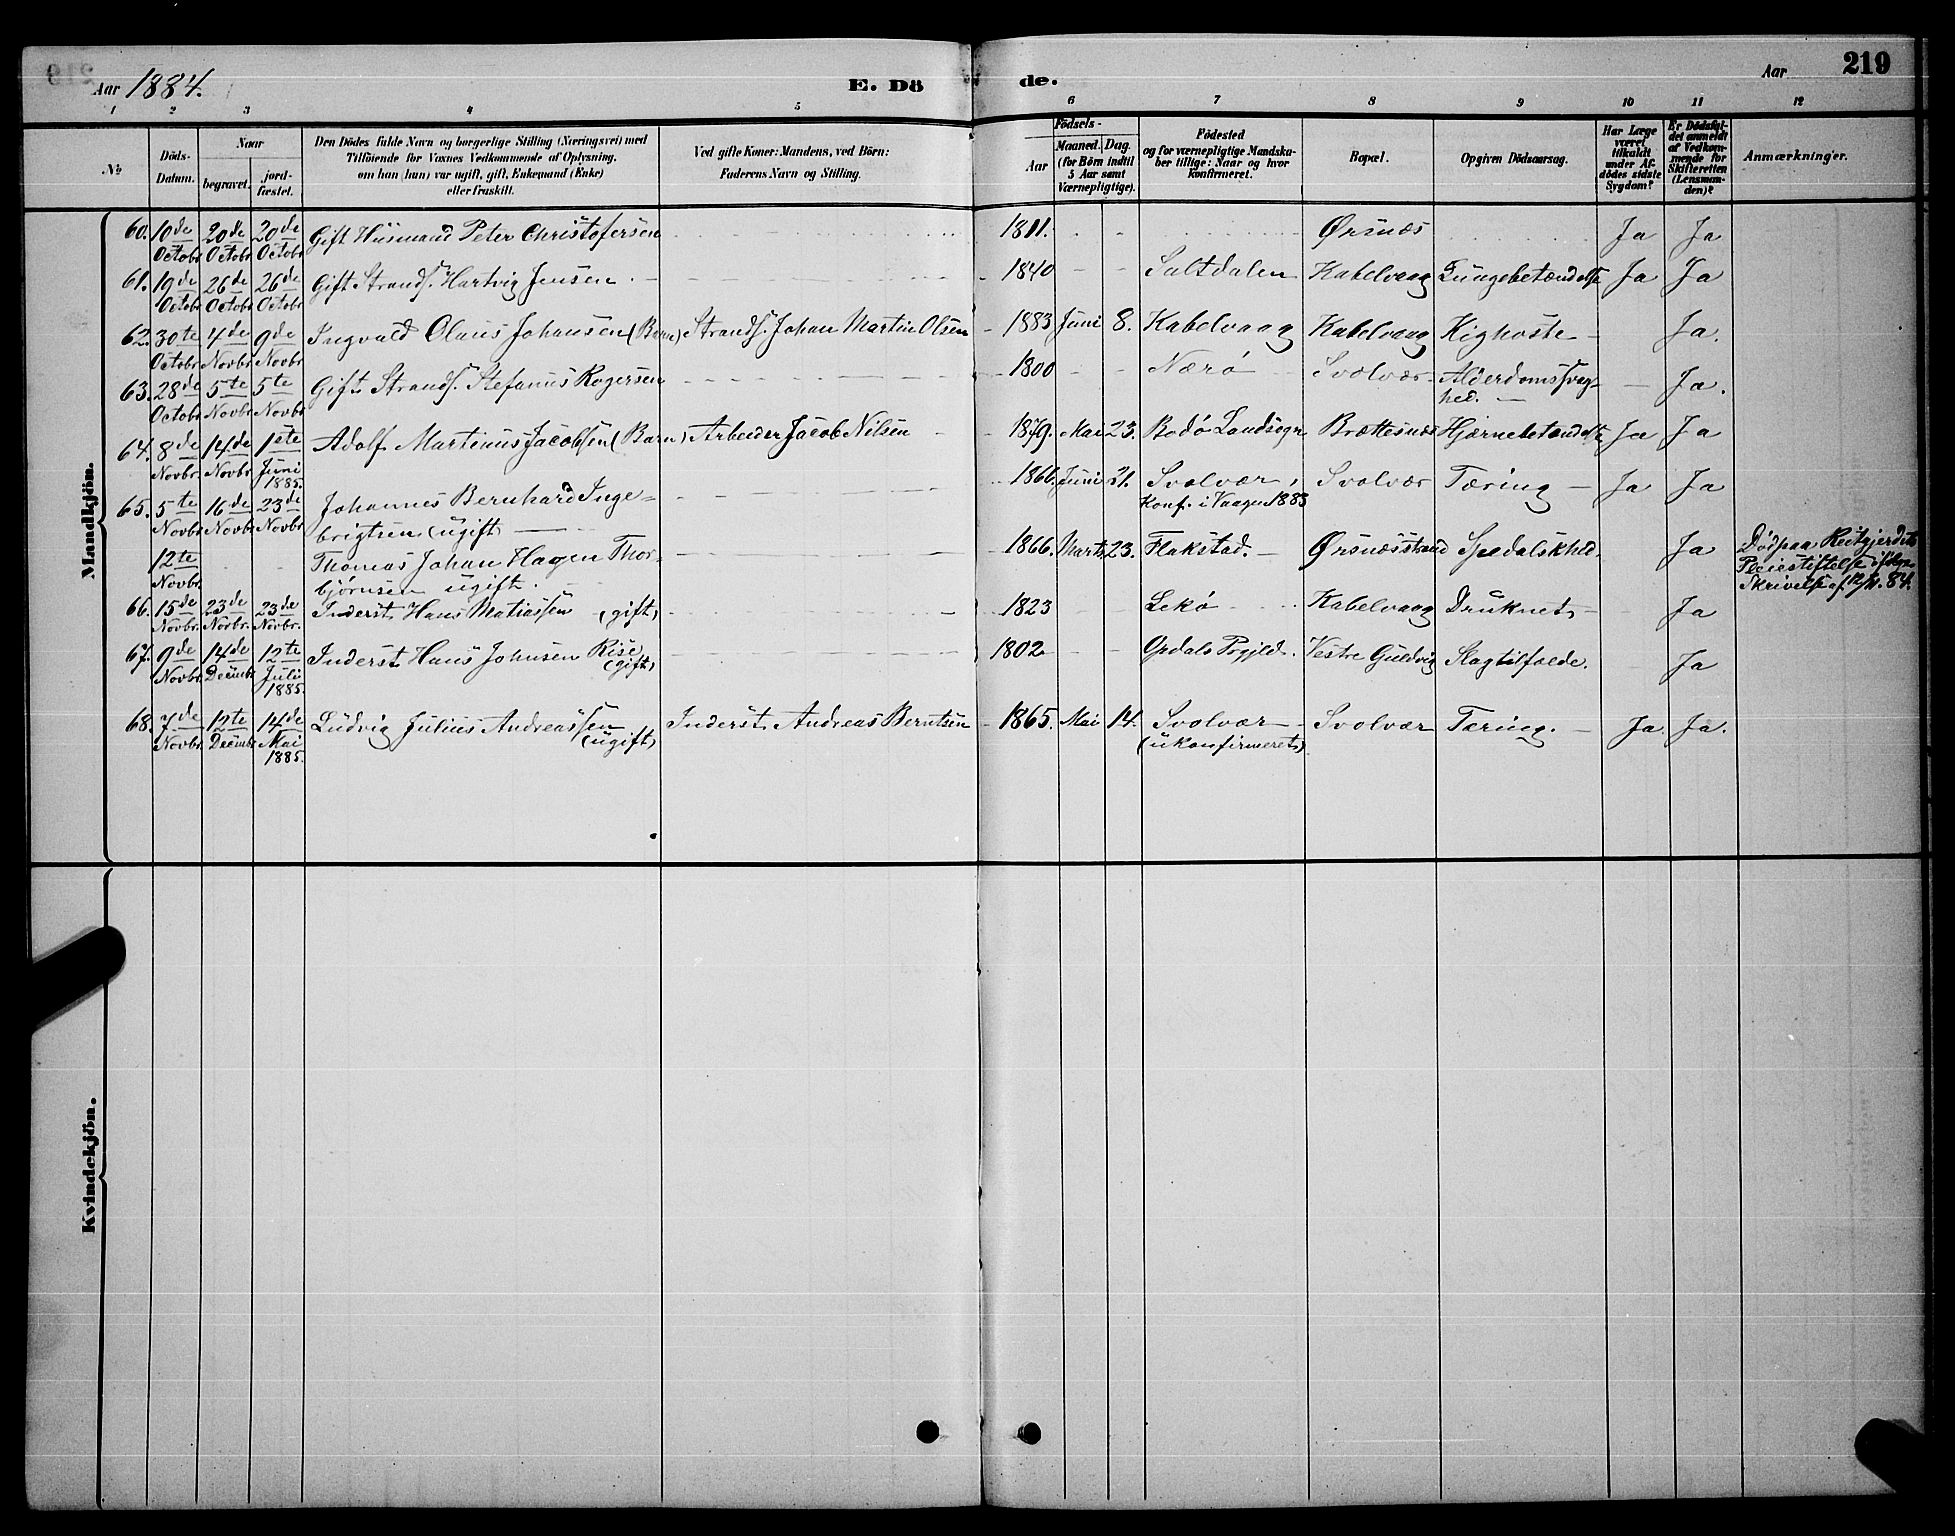 Aar 1884. E. Dö
de. Aar 219
1 2 3 4 5 6 7 8 9 10 11 12
No
Döds-Datum.
Naar
begravet.
jord-fæstet.
Den Dödes fulde Navn og borgerlige Stilling (Næringsvei) med
Tilföiende for Voxnes Vedkommende af Oplysning.
om han (hun) var ugift, gift, Enkemand (Enke)
eller fraskilt.
Ved gifte Koner: Mandens, ved Börn:
Faderens Navn og Stilling.
Födsels-
Aar
Maaned. Dag.
(for Börn indtil
5 Aar samt
Værnepligtige).
Födested
og for værnepligtige Mandska-
ber tillige: Naar og hvor
konfirmeret.
Bopæl.
Opgiven Dödsaarsag.
Har Læge
været
tilkaldt
under Af-
dödes sidste
Sygdom?
Er Dödsfal-
det anmeldt
af Vedkom-
mende for
Skifteretten
(Lensman-
den)?
Anmærkninger.
Mandkjön.
60. 10de Octobr 20de Octobr 20de Octobr Gift Husmand Peter Christofersen 1811. Ørsnæs Ja Ja
61. 19de Octobr 26de Octobr 26de Octobr Gift Strands. Hartvig Jensen 1840 Saltdalen Kabelvaag Lungebetændelse Ja Ja
62. 30te Octobr 4de Novbr 9de Novbr Ingvald Olaus Johansen (Barn) Strands. Johan Martin Olsen 1883 Juni 8. Kabelvaag Kabelvaag Kighoste Ja.
63. 28de Octobr 5te Novbr 5te Novbr Gift Strands. Stefanus Rogersen 1800 Nærø Svolvær Alderdomssvag-
hed. Ja.
64. 8de Novbr 14de Novbr 1ste Juni 1885. Adolf Martinus Jacobsen (Barn) Arbeider Jacob Nilsen 1879. Mai 23. Bodø Landsogn Brættesnæs Hjernebetændelse Ja Ja
65. 5te Novbr 16de Novbr 23de Novbr Johannes Bernhard Inge-
brigtsen (ugift) 1866. Juni 21. Svolvær, Svolvær Tæring Ja Ja
Konf. i Vaagen 1883
12te Novbr. Thomas Johan Hagen Thor-
bjørnsen ugift. 1866. Marts 23. Flakstad. Ørsnæsstrand Spedalskhed. Ja Død paa Reitgjerdets
Pleiestiftelse ifølge
Skrivelse af 84.
66. 15de Novbr. 23de Novbr. 23de Novbr. Inderst Hans Matiassen (gift) 1823 Lekø Kabelvaag Druknet Ja
67. 9de Novbr. 14de Decembr 12te Juli 1885. Inderst Hans Johnsen Rise (gift) 1802 Opdals Prgjeld. Vestre Guldvig Slagtilfælde. Ja
68. 7de Novbr. 12te Decembr 14de Mai 1885. Ludvig Julius Andreassen (ugift) Inderst Andreas Berntsen 1865. Mai 14. Svolvær Svolvær Tæring. Ja. Ja.
(ukonfirmeret)
Kvindekjön.